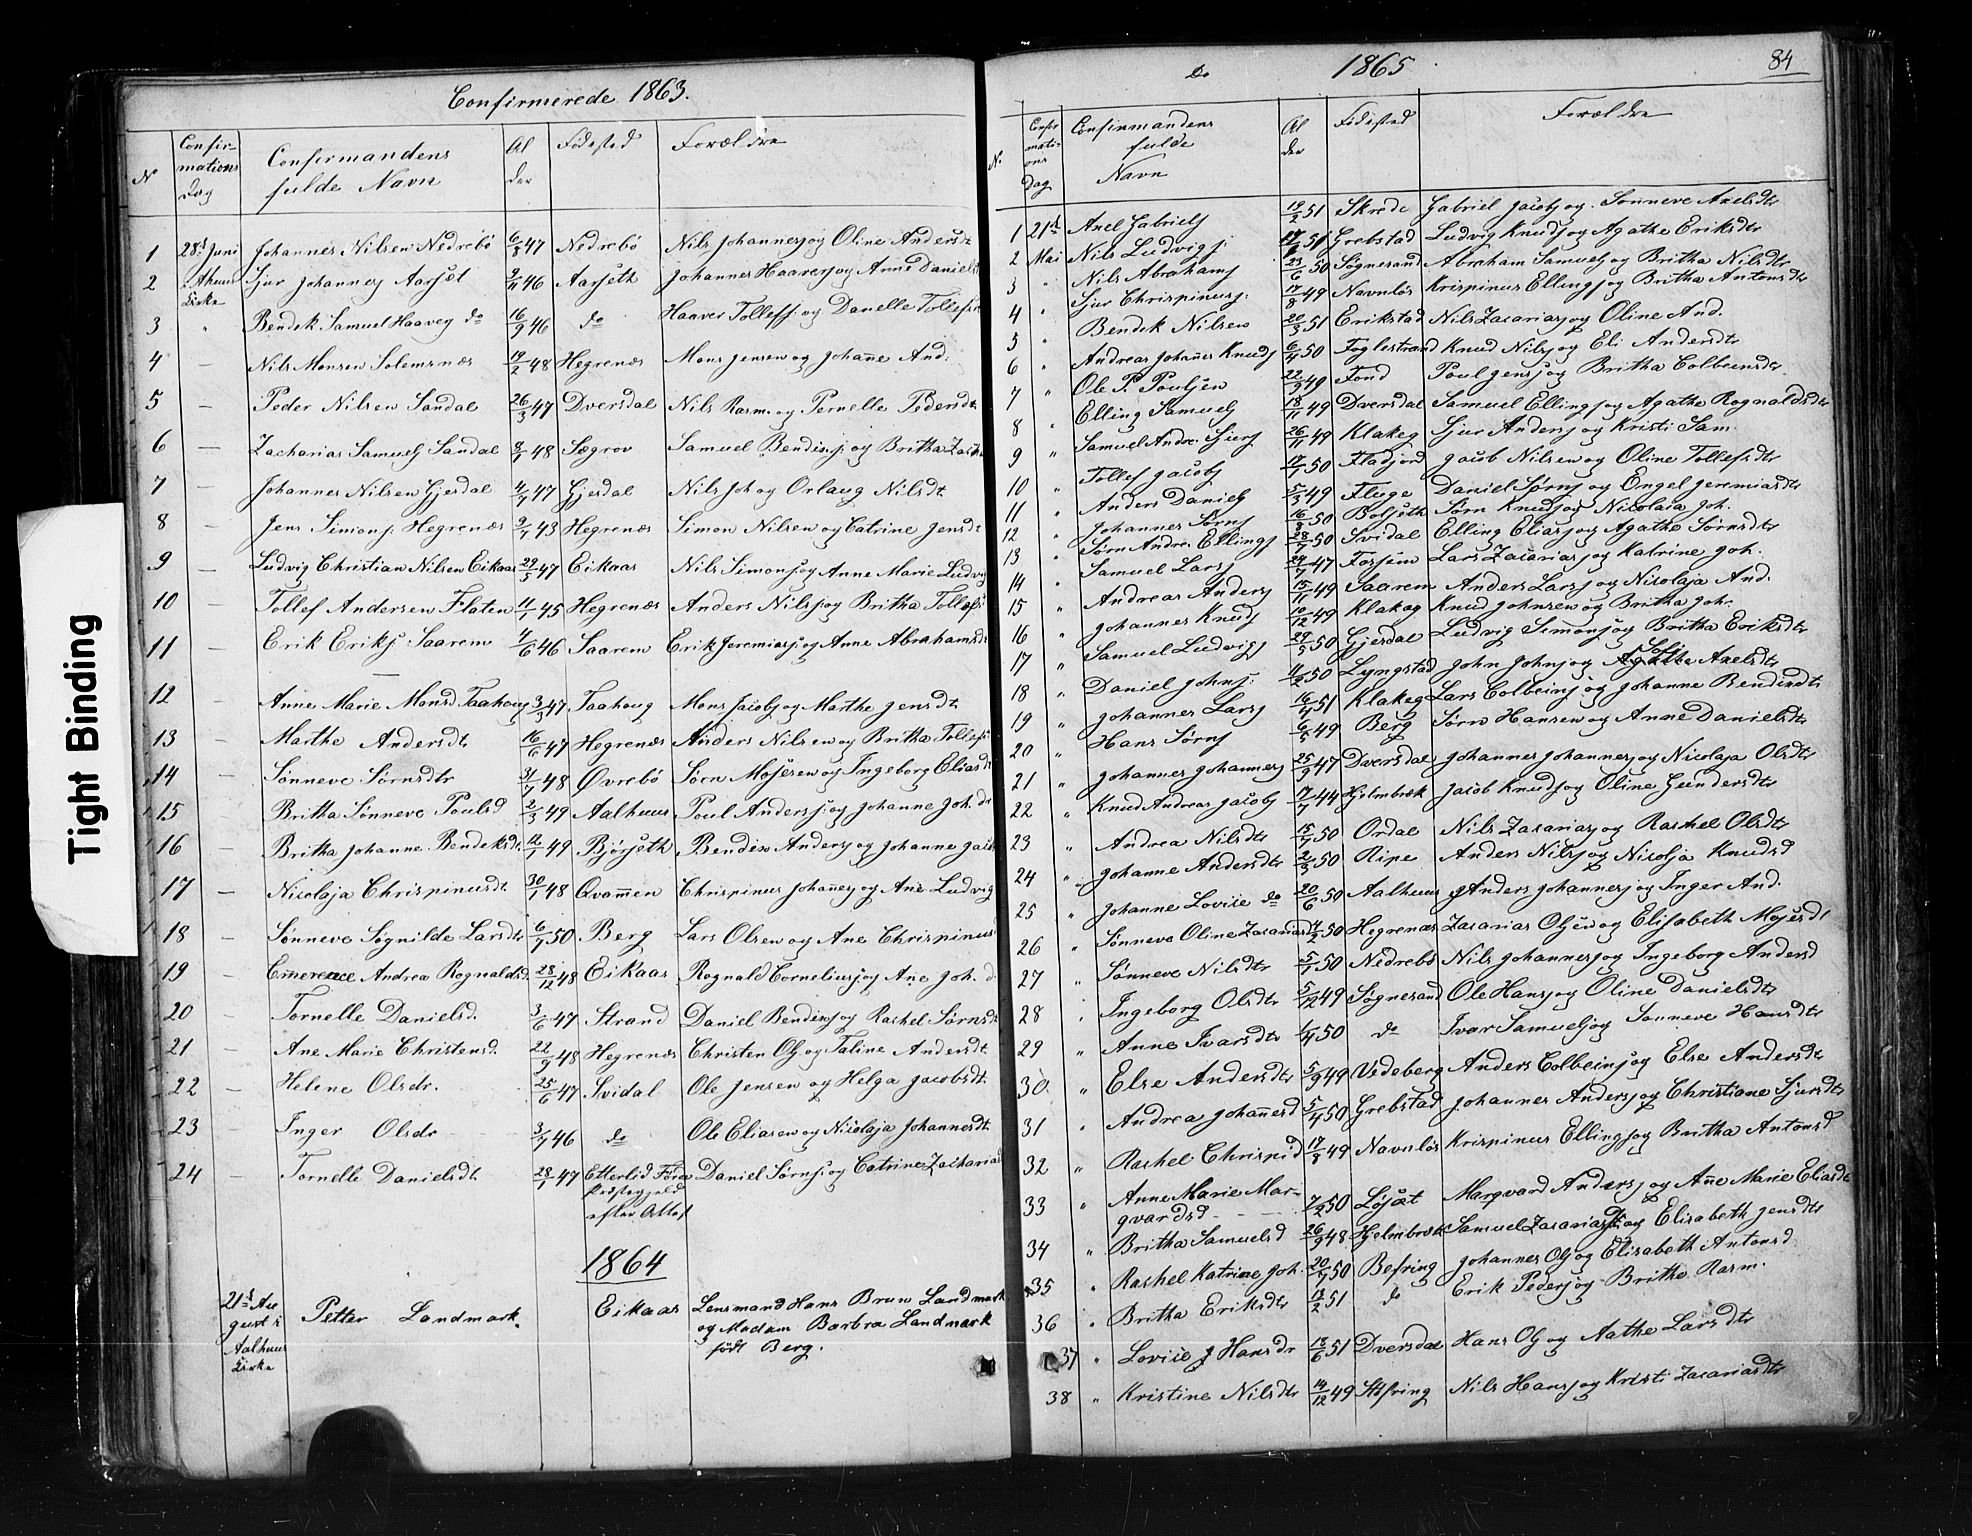 Confirmerede 1863.
N Confirmations Dag Confirmandens fulde Navn Alder Fødested Forældre
1 28de Juni Johannes Nilsen Nedrebø 6/8 47 Nedrebø Nils Johannesj og Oline Andersdt
2 Kirke Sjur Johannesj Aarset 2/11 46 Aarseth Johannes Haavesj og Anne Daniels
3 " Bendik Samuel Haavesj do 16/9 46 do Haaver Tollefsj. og Danelle Tollefs
4 — Nils Monsen Solemsnæs 19/2 48 Hegrenæs Mons Jensen og Johane And:
5 — Peder Nilsen Sandal 26/3 47 Dversdal Nils Rasm. og Pernelle Pedersdt.
6 — Zacharias Samuelsj Sandal 8/1 48 Sægrov Samuel Bendixj. og Britha Zach
7 — Johannes Nilsen Gjesdal 4/7 47 Gjesdal Nils Joh og Orlaug Nilsdt
8 — Jens Simonsj. Hegrenæs 2/7 43 Hegrenæs Simon Nilsen og Catrine Jensdt
9 — Ludvig Christian Nilsen Eikaas 22/5 47 Eikaas Nils Simonsj og Anne Marie Ludvig
10 — Tollef Andersen Flaten 11/1 45 Hegrenæs Anders Nilsj og Britha Tollefs
11 — Erik Eriksj Saarem 4/6 46 Saarem Erik Jeremiasj og Anne Abrahamsdt
12 — Anne Marie Monsd Taahoug 3/3 47 Taahoug Mons Jacobsj og Marthe Jensdt
13 — Marthe Andersdt 16/6 47 Hegrenæs Anders Nilsen og Britha Tollefs
14 — Sønneve Sørnsdtr 31/7 48 Øvrebø Sørn Mosesen og Ingeborg Eliasd
15 — Britha Sønneve Poulsd 2/3 49 Aalhuus Poul Andersj. og Johanne Joh. dt
16 — Britha Johanne Bendiksdt. 12/1 49 Bjørseth Bendix Andersj og Johanne Jacob
17 — Nicolaja Chrispinusdt. 30/1 48 Qvammen Chrispinus Johannesj og Ane Ludvig
18 — Sønneve Søgnilde Larsdtr 6/7 50 Berg Lars Olsen og Ane Chrispinus
19 — Emerence Andrea Rognaldsd. 28/12 48 Eikaas Rognald Corneliusj og Ane Joh. d
20 — Tornelle Danielsd. 3/6 47 Strand Daniel Bendixj og Rachel Sørnsdt
21 — Ane Marie Christensd. 22/9 48 Hegrenæs Christen Olsj og Taline Andersdt
22 — Helene Olsdr. 25/6 47 Svidal Ole Jensen og Helga Jacobsdt.
23 — Inger Olsdr 3/7 46 do Ole Eliasen og Nicolaja Johannesdt.
24 — Tornelle Danielsdt 28/1 47 Etterlid Førde Præstegjeld efter Attest Daniel Sørnsj og Catrine Zacharias
1864
21de August i Aalhuus Kirke Petter Landmark. Eikaas Lensmand Hans Brun Landmark
og Madam Barbra Landmark
født Berg.
do 1865 84
N. Confirmations Dag Confirmandens fulde Navn Alder Fødested Forældre
1 21de Axel Gabrielsj 19/2 51 Skrede Gabriel Jacobsj og Sønneve Axelsdtr
2 Mai Nils Ludvigsj. 51 Grebstad Ludvig Knudsj og Agathe Eriksdtr
3 " Nils Abrahamsj 23/6 50 Søgnesand Abraham Samuelsj og Britha Nilsdtr
4 " Sjur Chrispinusj. 17/8 49 Navnløs Krispinus Ellingsj og Britha Antonsdtr
5 " Bendik Nilsen 20/3 51 Erikstad Nils Zacariasj og Oline And.
6 " Andreas Johannes Knudsj 6/4 50 Foglestrand Knud Nilsj og Eli Andersdtr
7 " Ole P. Poulsen 22/9 49 Fond Poul Jensj og Britha Colbeensdtr
8 " Elling Samuelsj 18/11 49 Dversdal Samuel Ellingsj og Agathe Rognaldsdtr
9 " Samuel Andr. Sjursj 26/11 49 Klakeg Sjur Andersj og Kristi Sam.
10 " Tollef Jacobsj 17/7 50 Fladjord Jacob Nilsen og Oline Tollefsdtr
11 " Anders Danielsj 5/3 49 Fluge Daniel Sørnsj og Engel Jeremiasdtr
12 " Johannes Sørnsj 16/8 50 Bolseth Sørn Knudsj og Nicolaia Joh.
13 " Sørn Andr. Ellingsj 28/7 50 Svidal Elling Eliasj og Agathe Sørnsdtr
14 " Samuel Larsj 24/7 47 Forsjem Lars Zacariasj og Katrine Joh.
15 " Andreas Andersj 15/11 49 Saarem Anders Larsj og Nicolaja And.
16 " Johannes Knudsj 10/12 49 Klakeg Knud Johnsen og Britha Joh.
17 " Samuel Ludvigsj 29/5 50 Gjesdal Ludvig Simonsj og Britha Eriksdtr
18 " Daniel Johnsj. 4/2 50 Lyngstad John Johnsj og Axelsdtr
19 " Johannes Larsj 16/4 51 Klakeg Lars Colbeinsj og Johanne Bendixdtr
20 " Hans Sørnsj 6/5 49 Berg Sørn Hansen og Anne Danielsdtr
21 " Johannes Johannesj 25/9 47 Dversdal Johannes Johannesj og Nicolaja Olsdtr
22 " Knud Andreas Jacobsj 17/7 44 Hjelmbrek Jacob Knudsj og Oline Gundersdtr
23 " Andrea Nilsdtr 15/7 50 Ordal Nils Zacariasj og Rachel Olsdtr
24 " Johanne Andersdtr 2/3 50 Ripe Anders Nilsj og Nicolja Knudsd
25 " Johanne Lovise do 20/6 50 Aalhuus Anders Johannesj og Inger And.
26 " Sønneve Oline Zacariasd 4/2 50 Hegrenæs Zacarias Olsen og Elisabeth Mosesdt
27 " Sønneve Nilsdtr 5/1 50 Nedrebø Nils Johannesj og Ingeborg Andersd
28 " Ingeborg Olsdtr 5/12 49 Søgnesand Ole Hansj og Oline Danielsdtr
29 " Anne Ivarsdtr 4/4 50 do Ivar Samuelsj og Sønneve Hansdtr
30 " Else Andersdtr 5/9 49 Vedeberg Anders Colbeinsj og Else Andersdtr
31 " Andrea Johannesd 5/4 50 Grebstad Johannes Andersj og Christiane Sjursdtr
32 " Rachel Chrispid 17/8 49 Navnløs Krispinus Ellingsj og Britha Antonsd
33 " Anne Marie Marqvardsd 7/2 50 Løset Marqvard Andersj og Ane Marie Eliasdtr
34 " Britha Samuelsd 26/9 48 Hjelmbrek Samuel Zacariasj og Elisabeth Jensdtr
35 " Rachel Katrine Joh. 20/7 50 Befring Johannes Olsj og Elisabeth Antonsd
36 " Britha Eriksdtr 13/2 51 do Erik Pedersj og Brithe Rasm.
37 " Lovise J Hansdr 18/6 51 Dversdal Hans Olsj og Aathe Larsdtr
38 " Kristine Nilsdtr 14/12 49 Støfring Nils Hansj og Kristi Zacariasdtr
Tight Binding